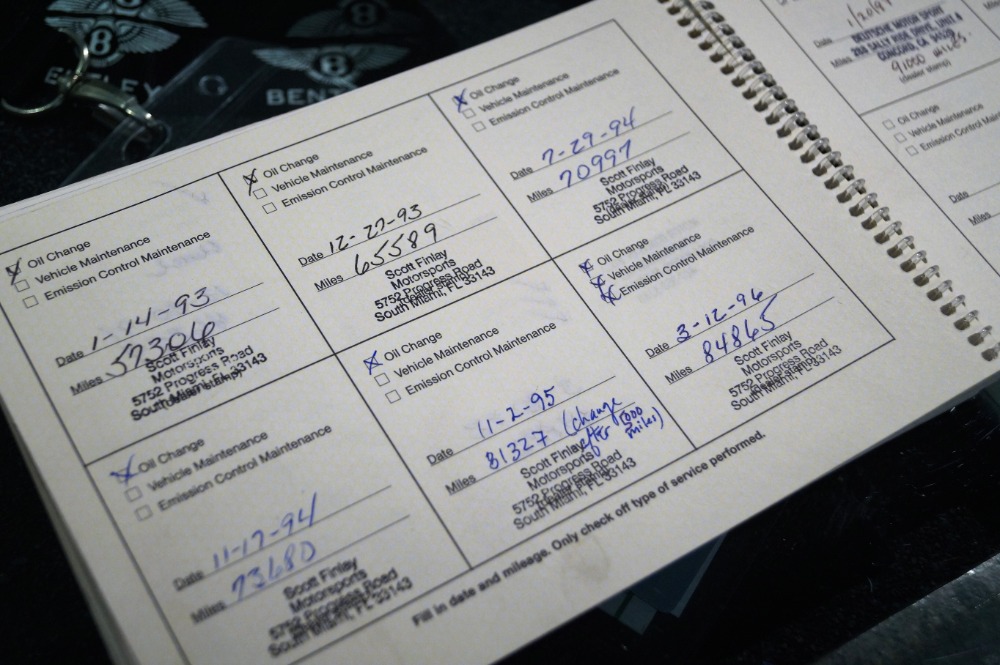 BENTLEY
BENT
Oil Change
Vehicle Maintenance
Emission Control Maintenance
Date 1-14-93
Miles 57306
Scott Finlay
Motorsports
5752 Progress Road
South Miami, FL 33143
Oil Change
Vehicle Maintenance
Emission Control Maintenance
Date 12-27-93
Miles 65589
Scott Finlay
Motorsports
5752 Progress Road
South Miami, FL 33143
Oil Change
Vehicle Maintenance
Emission Control Maintenance
Date 7-29-94
Miles 70997
Scott Finlay
Motorsports
5752 Progress Road
South Miami, FL 33143
Oil Change
Vehicle Maintenance
Emission Control Maintenance
Date 11-17-94
Miles 73680
Scott Finlay
Motorsports
5752 Progress Road
South Miami, FL 33143
Oil Change
Vehicle Maintenance
Emission Control Maintenance
Date 11-2-95
Miles 81327 (change
after 1000
miles)
Scott Finlay
Motorsports
5752 Progress Road
South Miami, FL 33143
Oil Change
Vehicle Maintenance
Emission Control Maintenance
Date 3-12-96
Miles 84865
Scott Finlay
Motorsports
5752 Progress Road
South Miami, FL 33143
Fill in date and mileage. Only check off type of service performed.
Date
DEUTSCHE MOTOR SPORT
CONCORD, CA
Miles 91000 miles
(dealer stamp)
Oil Change
Vehicle Maintenance
Emission Control
Date
Miles